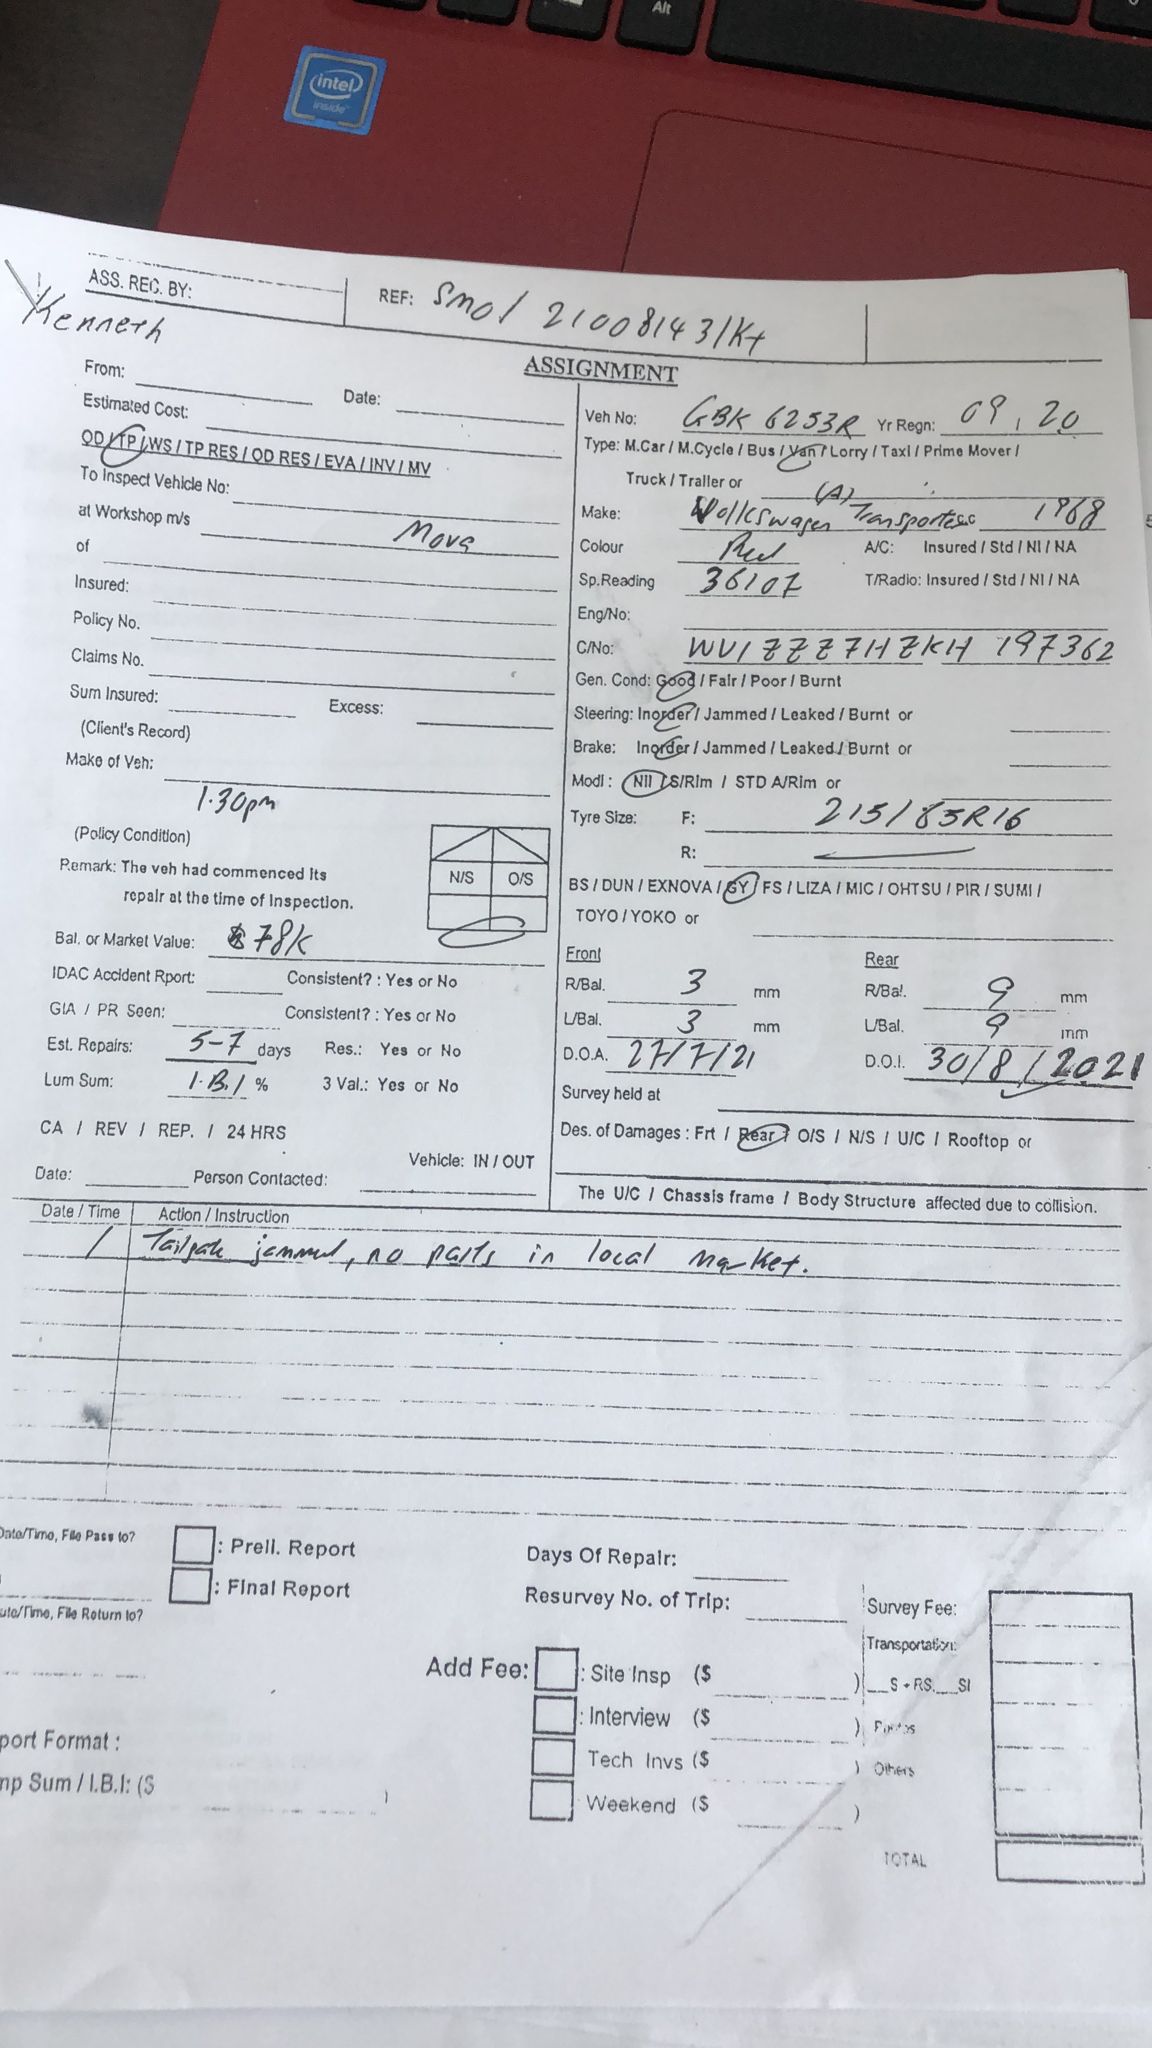 Alt
intel
inside
ASS. REC. BY:
Kenneth
REF: SMO/ 21008143/Kt
ASSIGNMENT
From:
Date:
Estimated Cost:
OD / TP / WS / TP RES / OD RES / EVA / INV / MV
To Inspect Vehicle No:
at Workshop m/s Mova
of
Insured:
Policy No.
Claims No.
Sum Insured:
Excess:
(Client's Record)
Make of Veh:
1.30pm
(Policy Condition)
Remark: The veh had commenced its
repair at the time of Inspection.
N/S O/S
Bal. or Market Value: $78K
IDAC Accident Rport: Consistent? : Yes or No
GIA / PR Seen: Consistent? : Yes or No
Est. Repairs: 5-7 days Res.: Yes or No
Lum Sum: I.B.I % 3 Val.: Yes or No
CA / REV / REP. / 24 HRS
Vehicle: IN / OUT
Date: Person Contacted:
Veh No: GBK 6253R Yr Regn: 09, 20
Type: M.Car / M.Cycle / Bus / Van / Lorry / Taxi / Prime Mover /
Truck / Trailer or (A)
Make: Volkswagen Transporter c.c 1968
Colour Red A/C: Insured / Std / NI / NA
Sp.Reading 36107 T/Radio: Insured / Std / NI / NA
Eng/No:
C/No: WV1ZZZ7HZKH 197362
Gen. Cond: Good / Fair / Poor / Burnt
Steering: Inorder / Jammed / Leaked / Burnt or
Brake: Inorder / Jammed / Leaked / Burnt or
Modi : Nil / S/Rim / STD A/Rim or
Tyre Size: F: 215/65R16
R:
BS / DUN / EXNOVA / GY / FS / LIZA / MIC / OHTSU / PIR / SUMI /
TOYO / YOKO or
Front Rear
R/Bal. 3 mm R/Bal. 9 mm
L/Bal. 3 mm L/Bal. 9 mm
D.O.A. 27/7/21 D.O.I. 30/8/2021
Survey held at
Des. of Damages : Frt / Rear / O/S / N/S / U/C / Rooftop or
The U/C / Chassis frame / Body Structure affected due to collision.
Date / Time Action / Instruction
/ Tailgate jammed, no parts in local market.
Date/Time, File Pass to?
: Prell. Report
: Final Report
Date/Time, File Return to?
Days Of Repair:
Resurvey No. of Trip:
Survey Fee:
Transportation:
Add Fee: : Site Insp ($ ) __S + RS.__SI
: Interview ($ ) Photos
Tech Invs ($ ) Others
Weekend ($ )
port Format :
mp Sum / I.B.I: ($ )
TOTAL